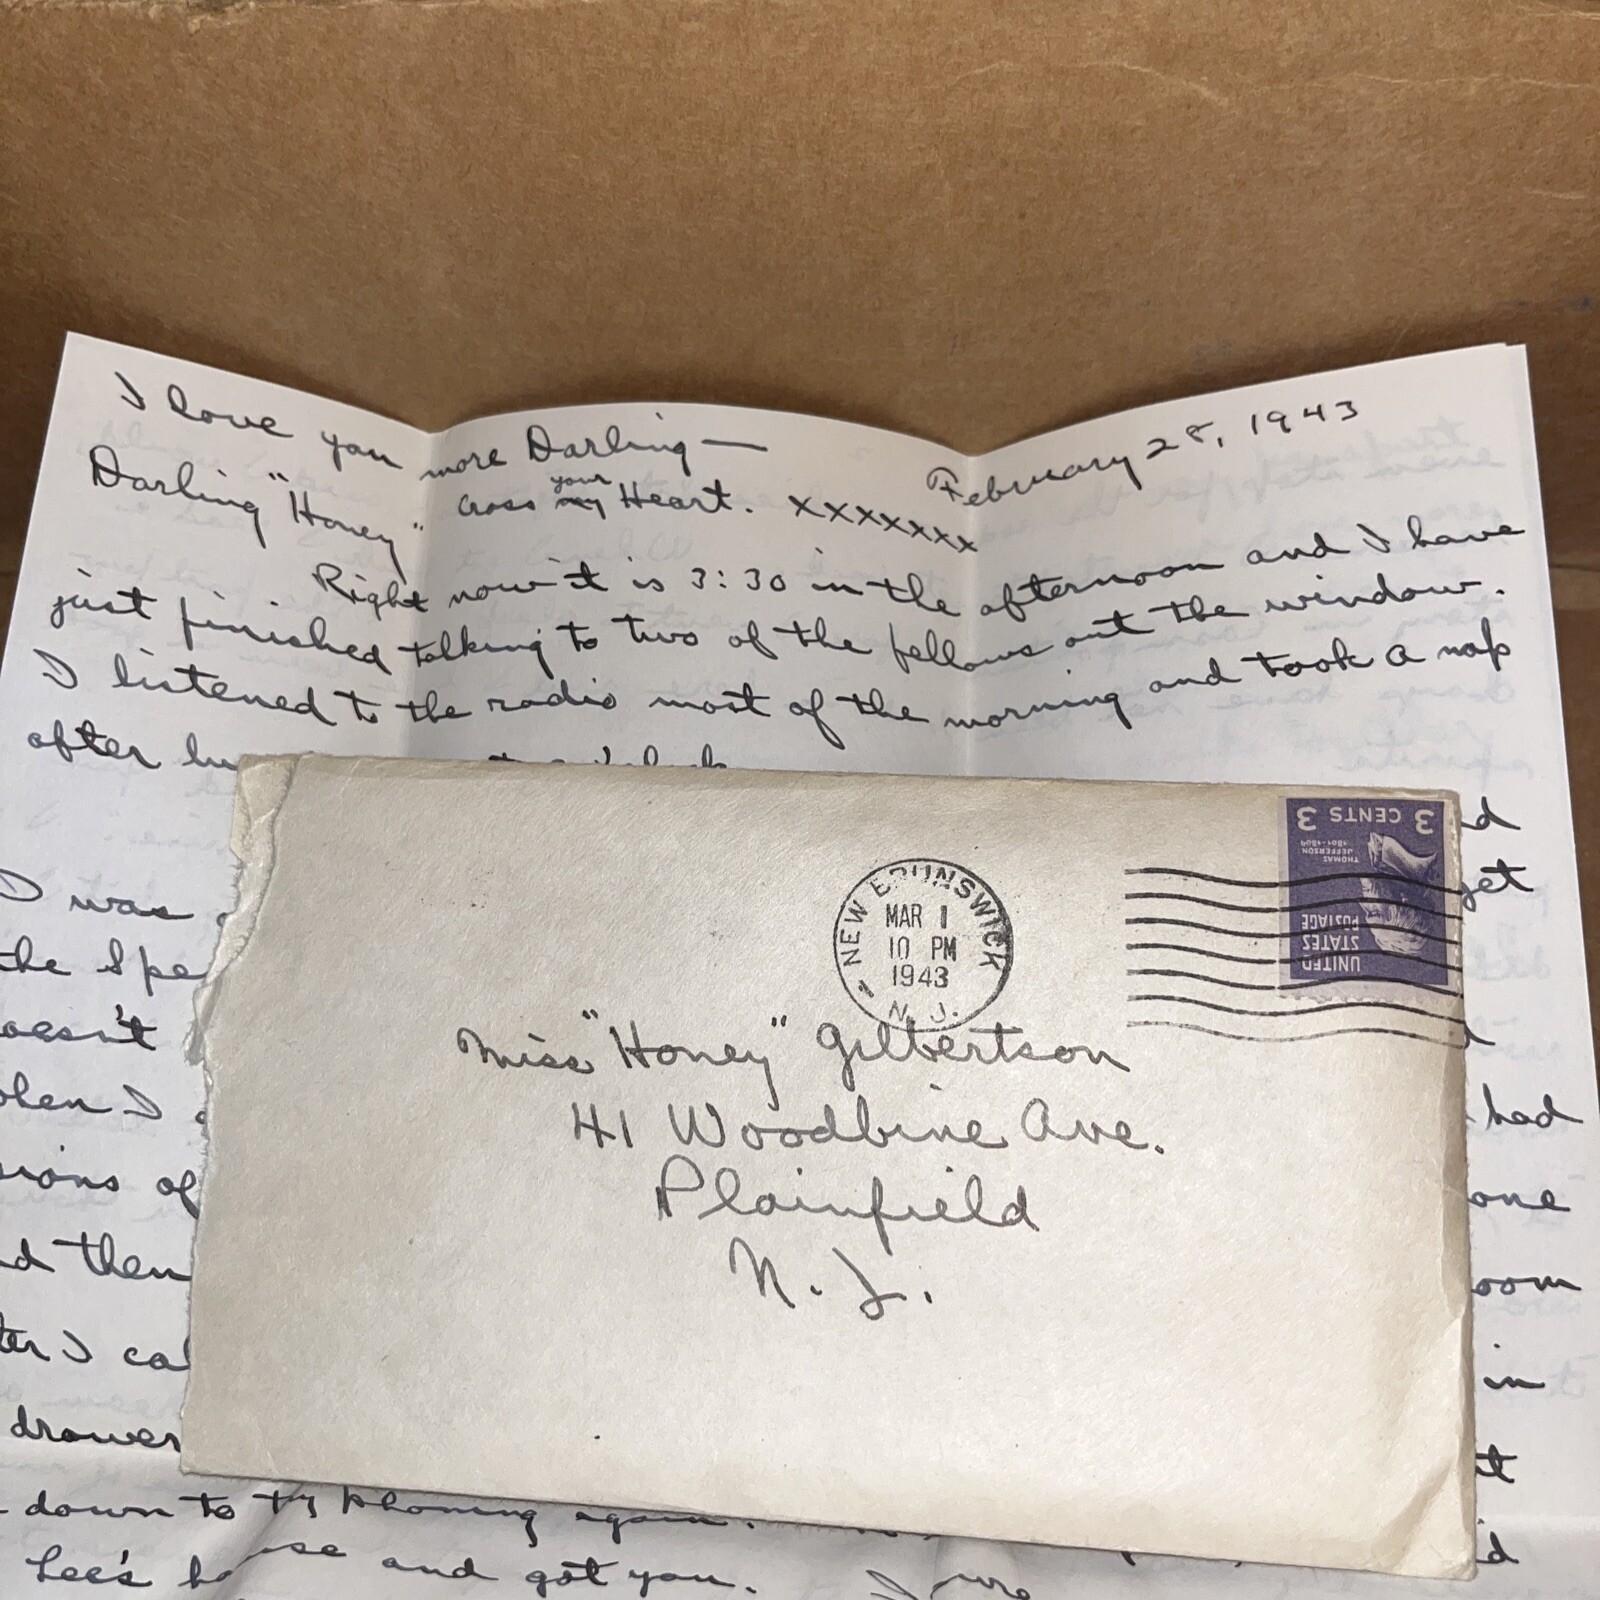 I love you more Darling —
February 28, 1943
Darling "Honey"
Cross your my Heart. xxxxxxx
Right now it is 3:30 in the afternoon and I have
just finished talking to two of the fellows out the window.
I listened to the radio most of the morning and took a nap
after
I was
get
the
doesn't
when I
had
of
one
then
room
I
in
drawer
down to try phoning again.
Lee's house and got you.
I
3 CENTS 3
THOMAS
JEFFERSON
1801-1809
UNITED
STATES
POSTAGE
NEW BRUNSWICK
MAR 1
10 PM
1943
N. J.
1
Miss "Honey" Gilbertson
41 Woodbine Ave.
Plainfield
N. J.